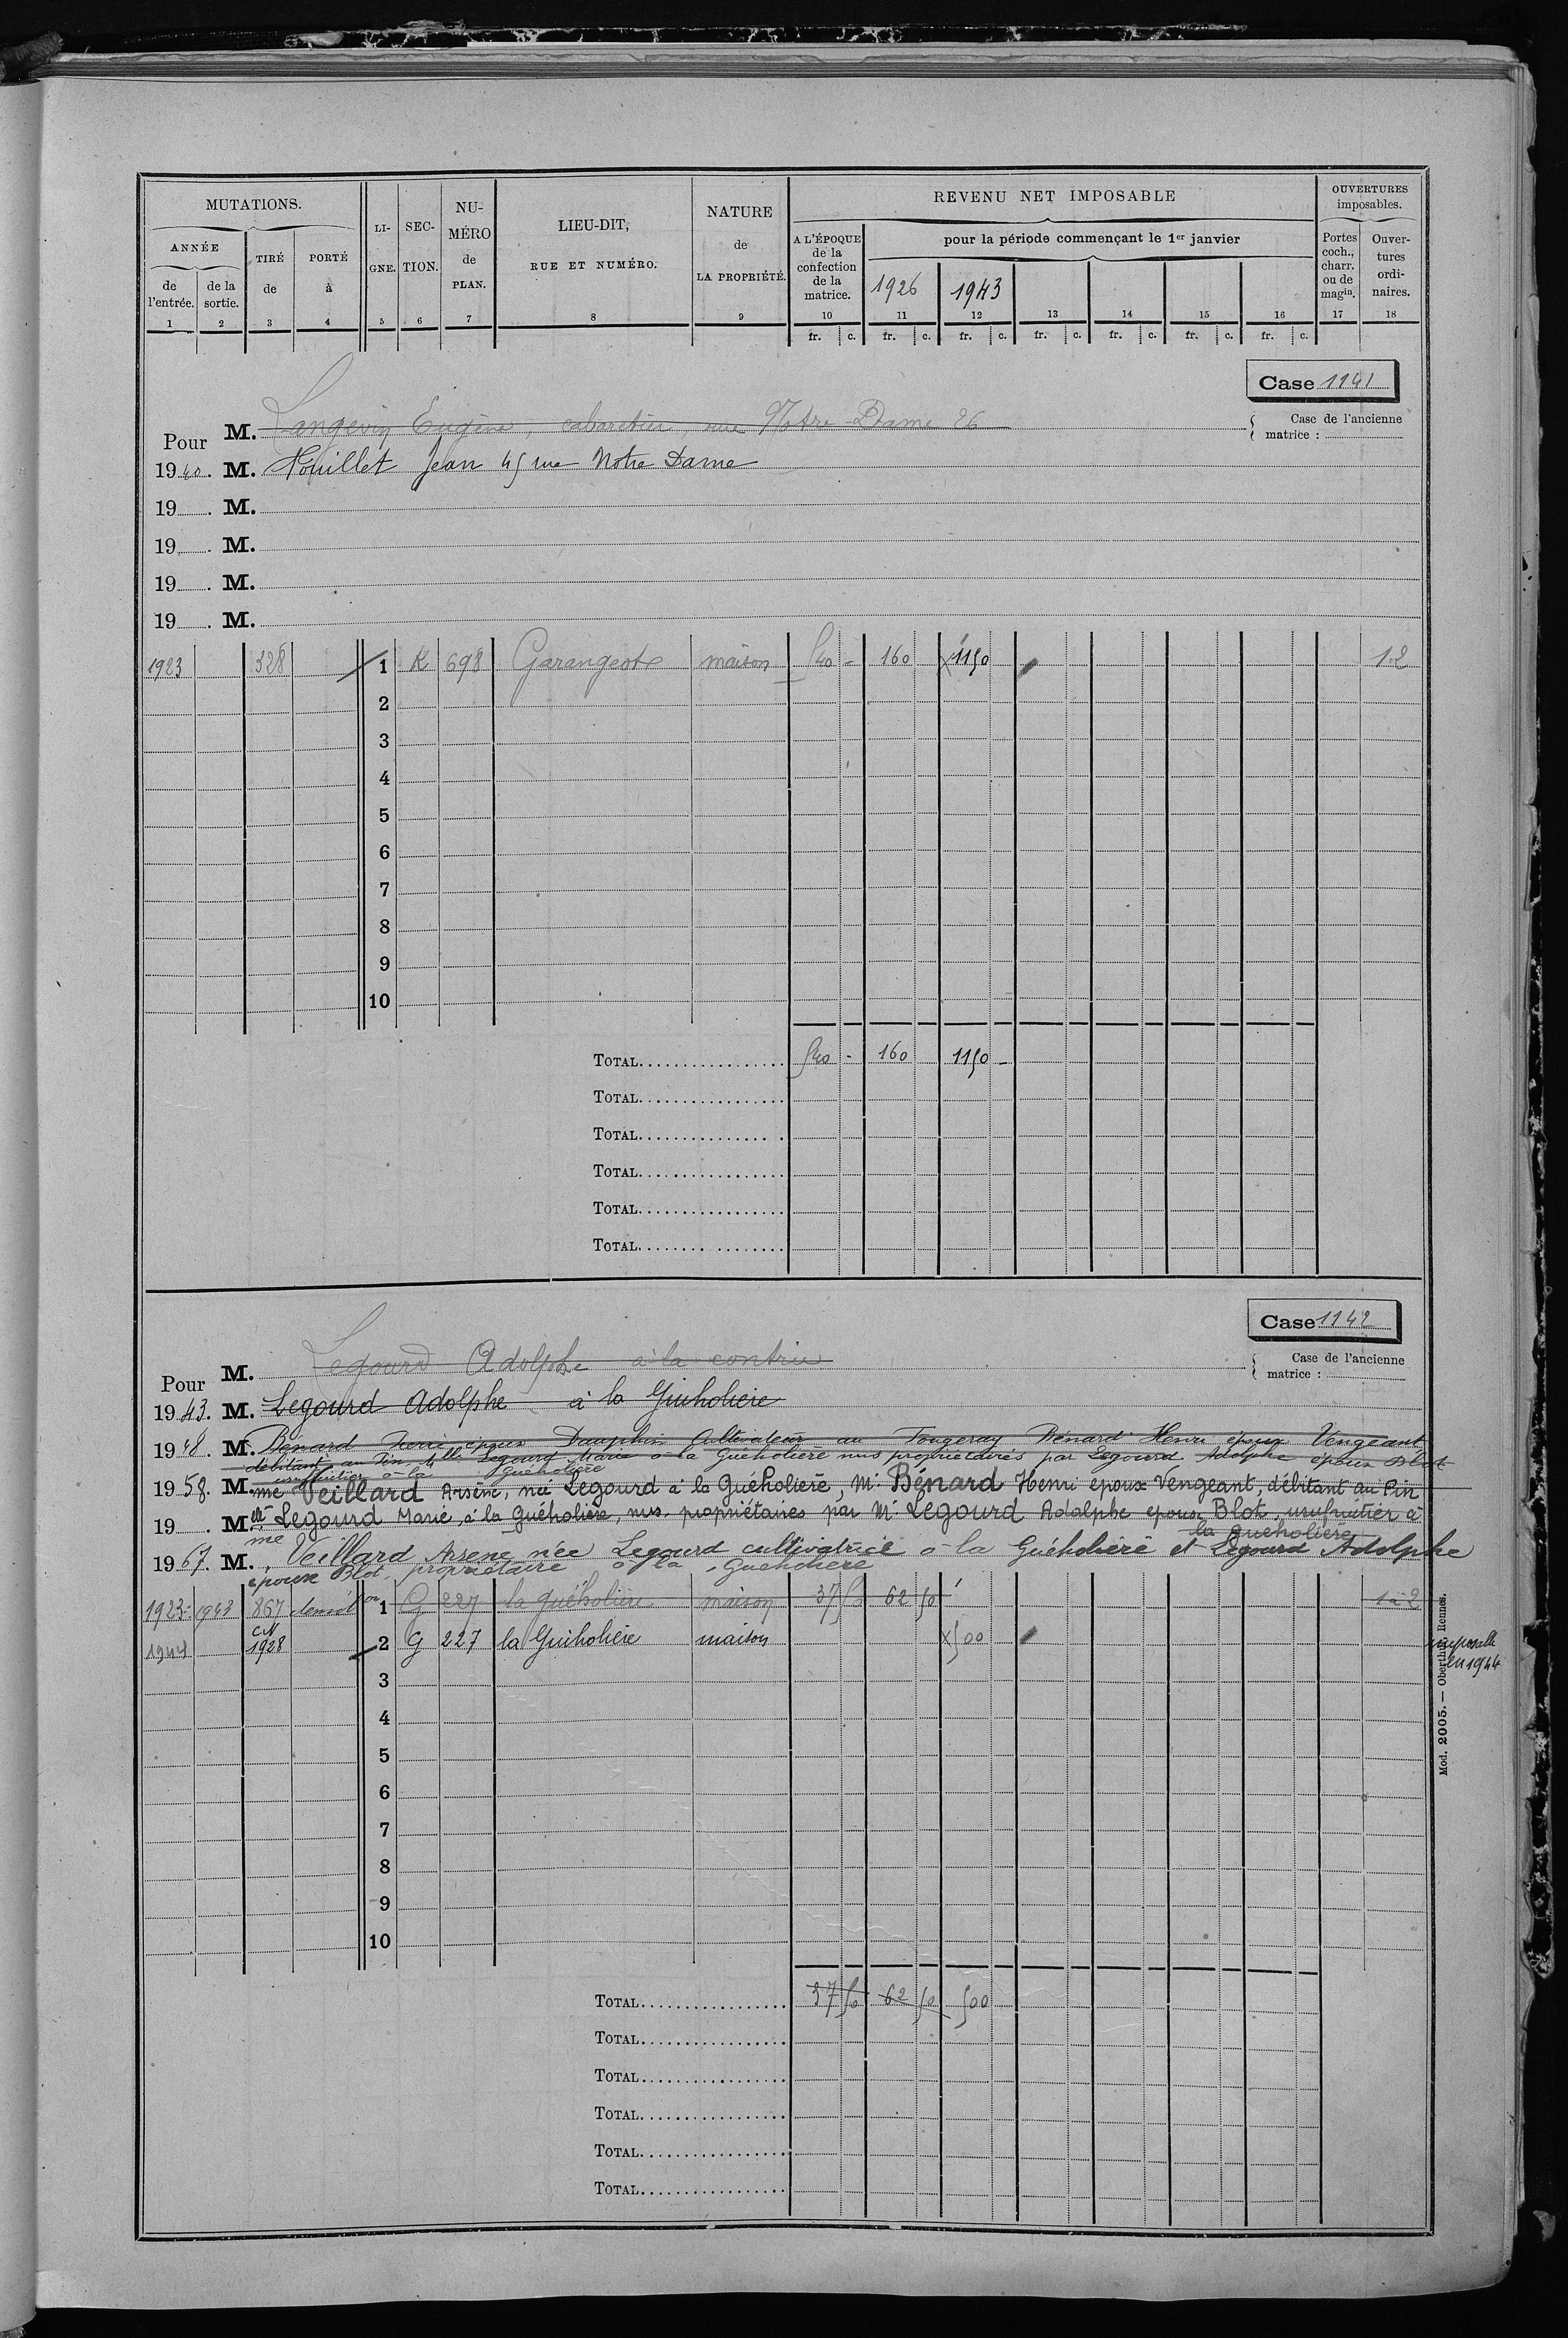 MUTATIONS.
ANNÉE
de l'entrée. de la sortie. TIRÉ de PORTÉ à
LIGNE. SECTION. NUMÉRO de PLAN.
LIEU-DIT, RUE ET NUMÉRO.
NATURE de LA PROPRIÉTÉ.
REVENU NET IMPOSABLE
A L'ÉPOQUE de la confection de la matrice.
pour la période commençant le 1er janvier
1926 1943
OUVERTURES imposables.
Portes coch., charr. ou de magin. Ouvertures ordinaires.
1 2 3 4 5 6 7 8 9 10 11 12 13 14 15 16 17 18
fr. c. fr. c. fr. c. fr. c. fr. c. fr. c. fr. c.
Case 1141
Pour M. Langevin Eugène, cabaretier, rue Notre-Dame 26
Case de l'ancienne matrice :
1940. M. Houillet Jean 45 rue Notre Dame
19 . M.
19 . M.
19 . M.
19 . M.
1923 328 1 K 698 Garangeot maison 540 - 160 1150 12
2
3
4
5
6
7
8
9
10
TOTAL 540 - 160 1150 -
TOTAL
TOTAL
TOTAL
TOTAL
TOTAL
Case 1142
Pour M. Legourd Adolphe à la contrie
Case de l'ancienne matrice :
1943. M. Legourd Adolphe à la Guiholière
1948. M. Bénard époux Dauphin Cultivateur au Fougeray Bénard Henri époux Vengeant
débitant au Pin Mlle Legourd Marie à la Guéholière nus propriétaires par Legourd Adolphe époux Blot
usufruitier à la Guéholière
1958. M.me Veillard Arsène, née Legourd à la Guéholière, Mr Bénard Henri époux Vengeant, débitant au Pin
19 . M.elle Legourd Marie, à la Guéholière, nus. propriétaires par Mr Legourd Adolphe époux Blot, usufruitier à
la Guéholière
1967. M.me Veillard Arsene née Legourd cultivatrice à la Guéholière et Legourd Adolphe
époux Blot, propriétaire à la Guéholière
1923 1943 867 démolon 1 G 227 la Guéholière maison 37 50 62 50 1 à 2
1944 CN 1928 2 G 227 la Guiholière maison 500 imposable en 1944
3
4
5
6
7
8
9
10
TOTAL 37 50 62 50 500
TOTAL
TOTAL
TOTAL
TOTAL
TOTAL
Mod. 2005. — Oberthur, Rennes.